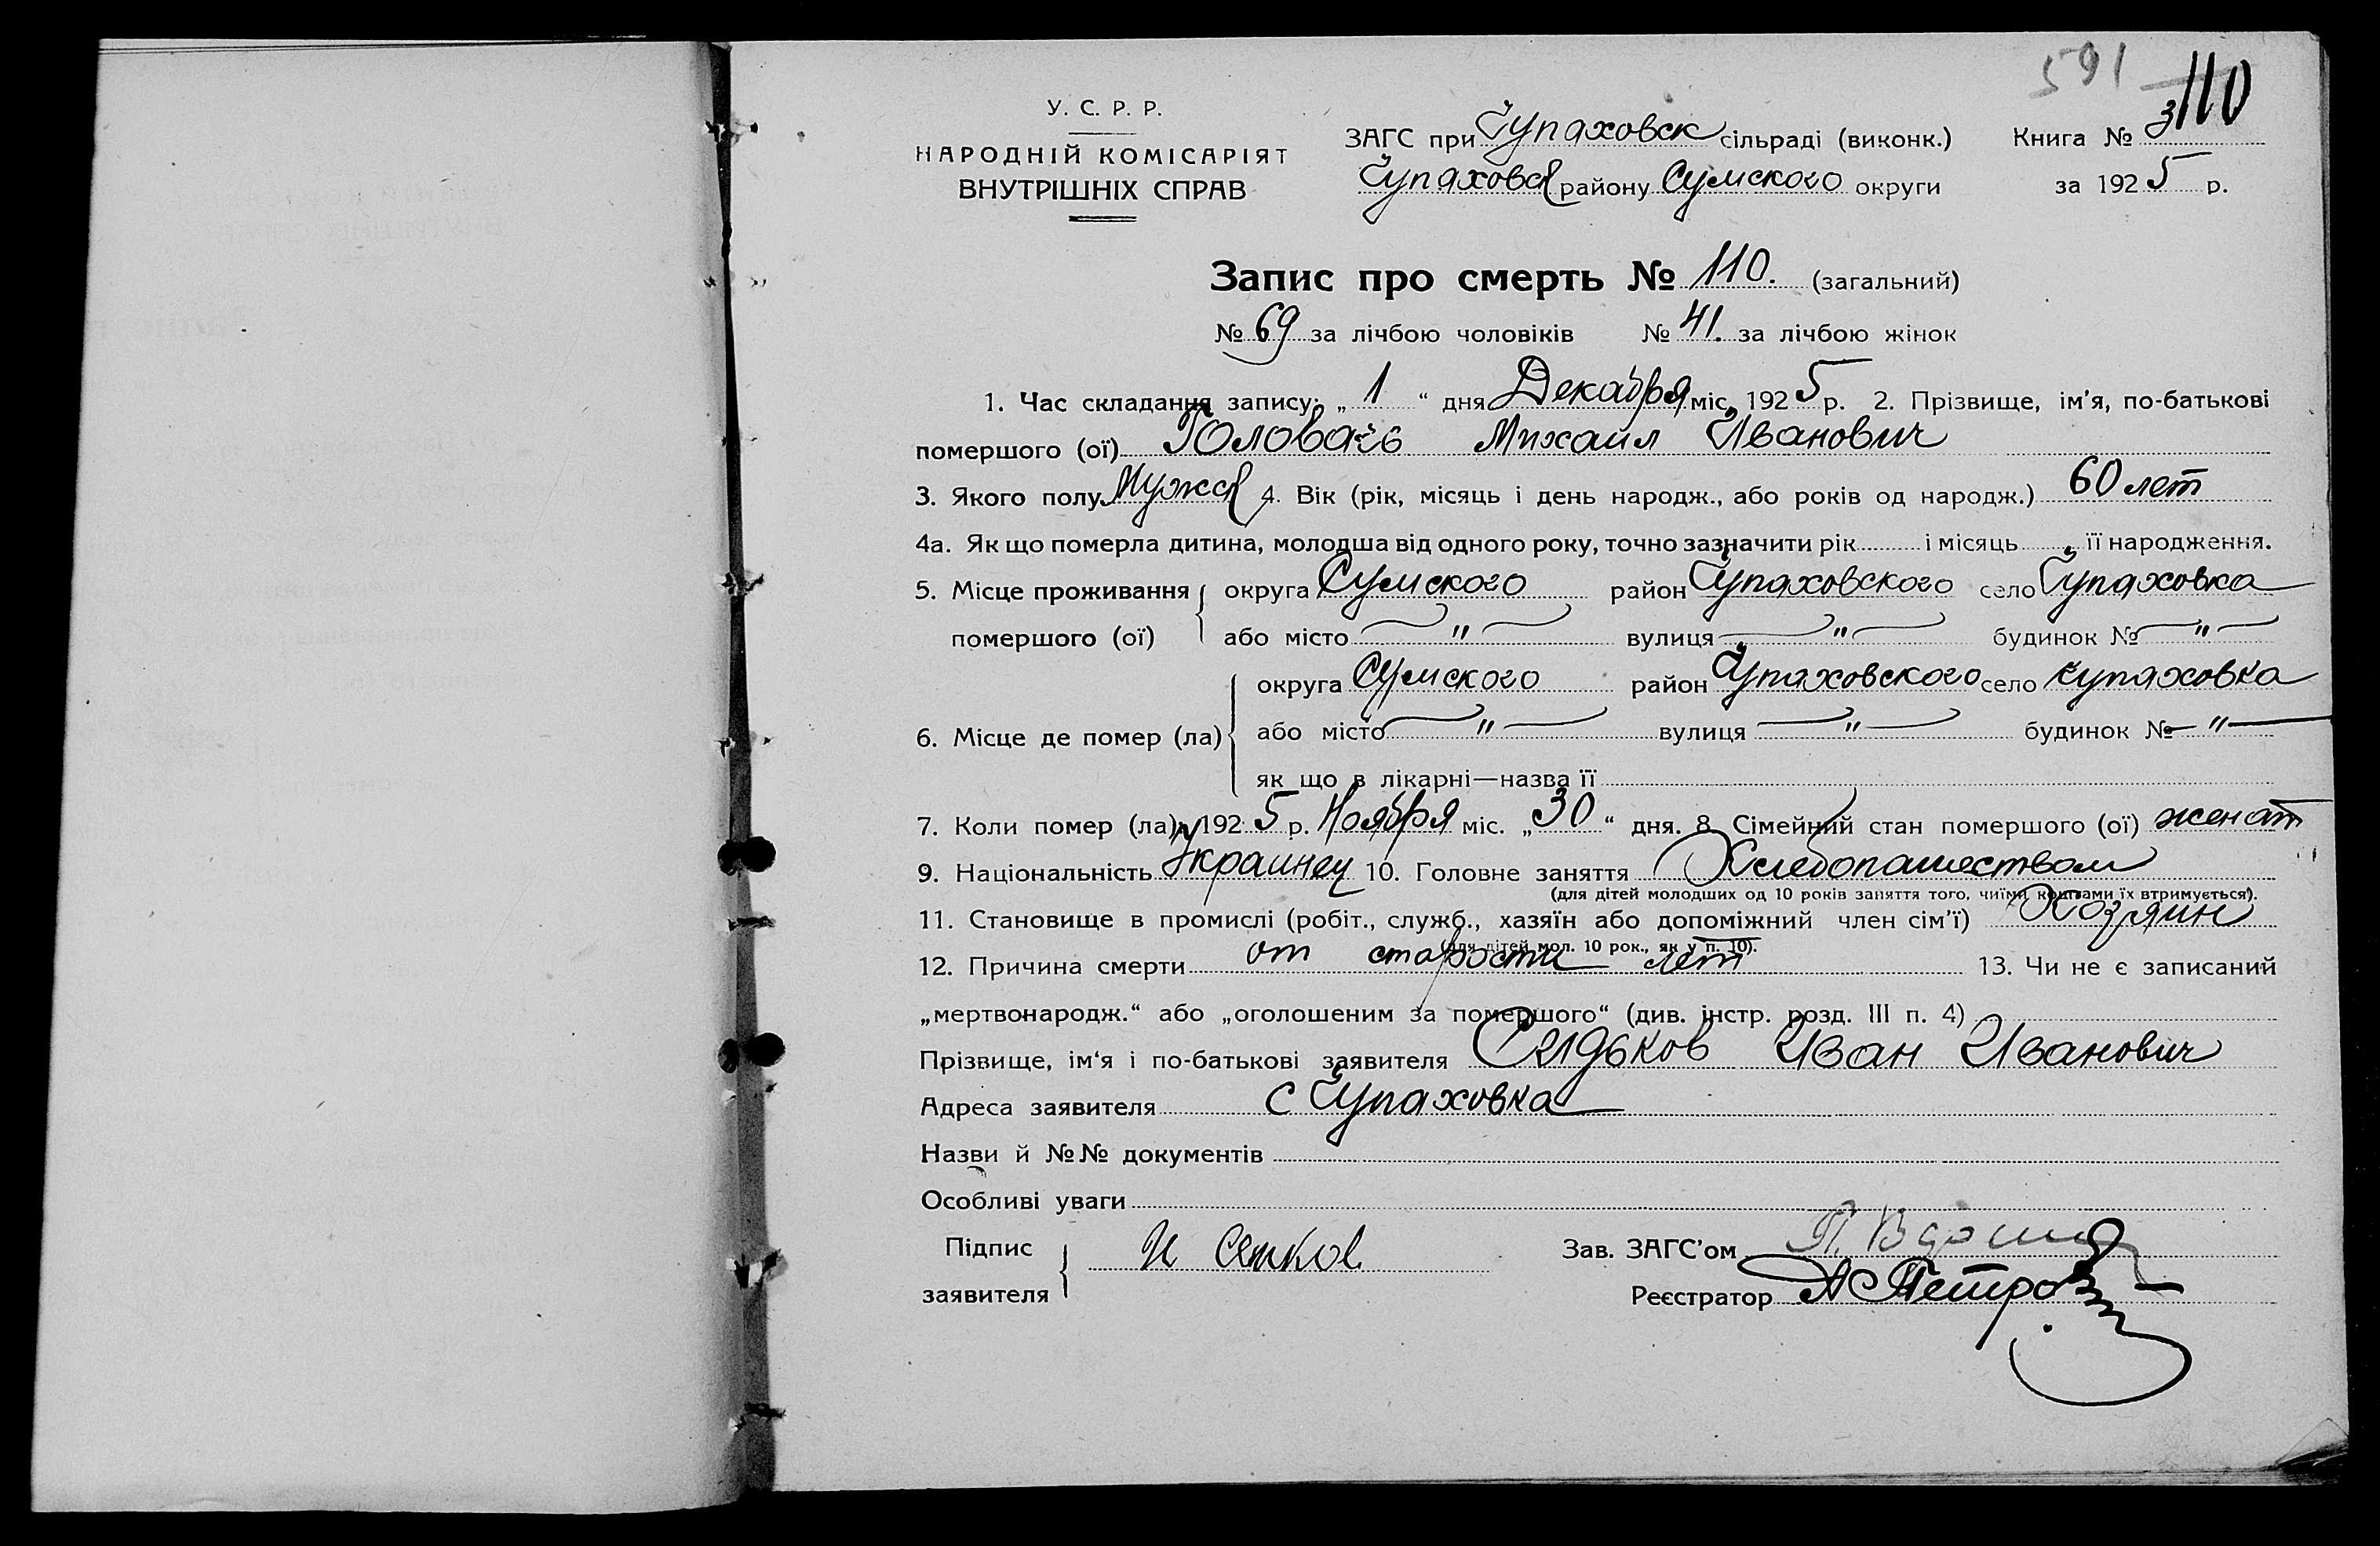 591 110
У. С. Р. Р.
НАРОДНІЙ КОМІСАРІЯТ
ВНУТРІШНІХ СПРАВ
ЗАГС при Чупаховск сільраді (виконк.) Книга № 3
Чупаховск району Сумского округи за 1925 р.
Запис про смерть № 110. (загальний)
№ 69 за лічбою чоловіків № 41. за лічбою жінок
1. Час складання запису: „ 1 “ дня Декабря міс. 1925 р. 2. Прізвище, ім'я, по-батькові
помершого (ої) Головань Михаил Иванович
3. Якого полу Мужск 4. Вік (рік, місяць і день народж., або років од народж.) 60 лет
4а. Як що померла дитина, молодша від одного року, точно зазначити рік і місяць її народження.
5. Місце проживання округа Сумского район Чупаховского село Чупаховка
помершого (ої) або місто " вулиця " будинок № "
округа Сумского район Чупаховского село Чупаховка
6. Місце де помер (ла) або місто " вулиця " будинок № "
як що в лікарні—назва її
7. Коли помер (ла) 1925 р. Ноября міс. „30“ дня. 8. Сімейний стан помершого (ої) женат
9. Національність Украинец 10. Головне заняття Хлебопашеством
(для дітей молодших од 10 років заняття того, чиїми коштами їх втримується).
11. Становище в промислі (робіт., служб., хазяїн або допоміжний член сім'ї) Хозяин
(для дітей мол. 10 рок., як у п. 10).
12. Причина смерти от старости лет 13. Чи не є записаний
„мертвонародж.“ або „оголошеним за помершого“ (див. інстр. розд. III п. 4)
Прізвище, ім'я і по-батькові заявителя Иван Иванович
Адреса заявителя с Чупаховка
Назви й №№ документів
Особливі уваги
Підпис И Зав. ЗАГС'ом П.
заявителя Реєстратор А Петров